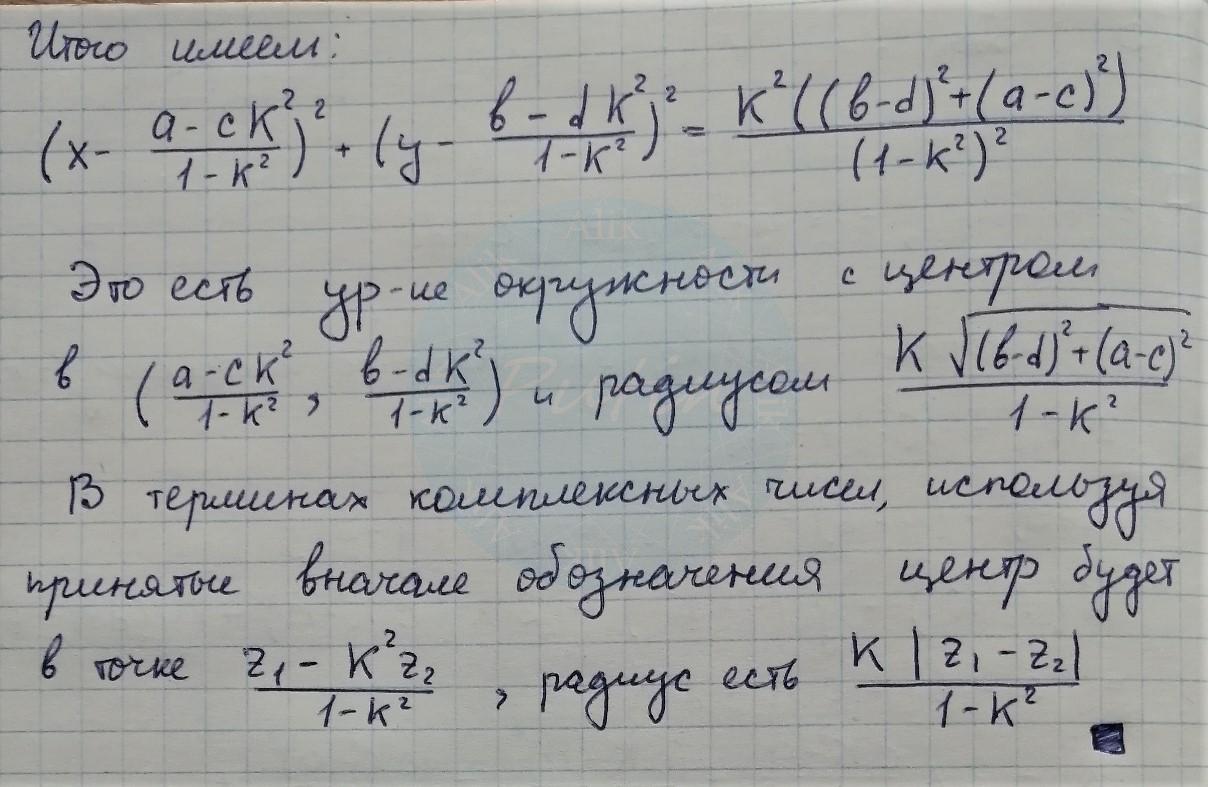 Итого имеем:
(x - \frac{a - ck^2}{1 - k^2})^2 + (y - \frac{в - dk^2}{1 - k^2})^2 = \frac{k^2((в-d)^2 + (a-c)^2)}{(1-k^2)^2}
Это есть ур-ие окружности с центром
в (\frac{a - ck^2}{1 - k^2}, \frac{в - dk^2}{1 - k^2}) и радиусом \frac{k\sqrt{(в-d)^2 + (a-c)^2}}{1 - k^2}
В терминах комплексных чисел, используя
принятые вначале обозначения центр будет
в точке \frac{z_1 - k^2 z_2}{1 - k^2}, радиус есть \frac{k|z_1 - z_2|}{1 - k^2}
Alik